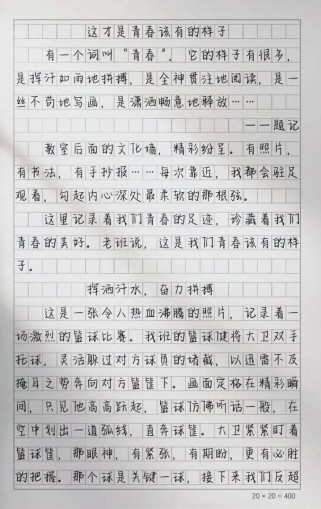 这才是青春该有的样子
有一个词叫“青春”。它的样子有很多，
是挥汗如雨地拼搏，是全神贯注地阅读，是一
丝不苟地写画，是潇洒畅意地释放……
——题记
教室后面的文化墙，精彩纷呈。有照片，
有书法，有手抄报……每次靠近，我都会驻足
观看，勾起内心深处最柔软的那根弦。
这里记录着我们青春的足迹，珍藏着我们
青春的美好。老班说，这是我们青春该有的样
子。
挥洒汗水，奋力拼搏
这是一张令人热血沸腾的照片，记录着一
场激烈的篮球比赛。我班的篮球健将大卫双手
托球，灵活躲过对方球员的堵截，以迅雷不及
掩耳之势奔向对方篮筐下。画面定格在精彩瞬
间，只见他高高跃起，篮球仿佛听话一般，在
空中划出一道弧线，直奔球筐。大卫紧紧盯着
篮球筐，那眼神，有紧张，有期盼，更有必胜
的把握。那个球是关键一球，接下来我们反超
20×20=400